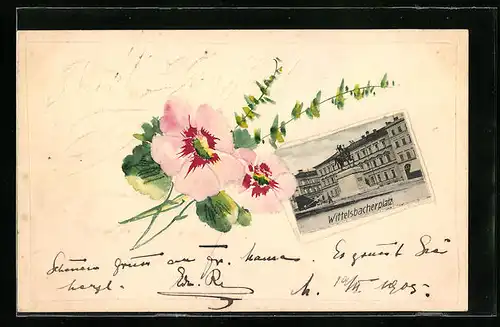 Wittelsbacherplatz
Schönen Gruss an Fr. Mama. Es grüsst Sie
herzl. Edm. Re
M. 19/II. 1905.